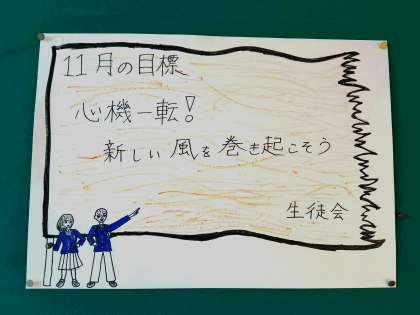 11月の目標
心機一転!
新しい風を巻き起こそう
生徒会